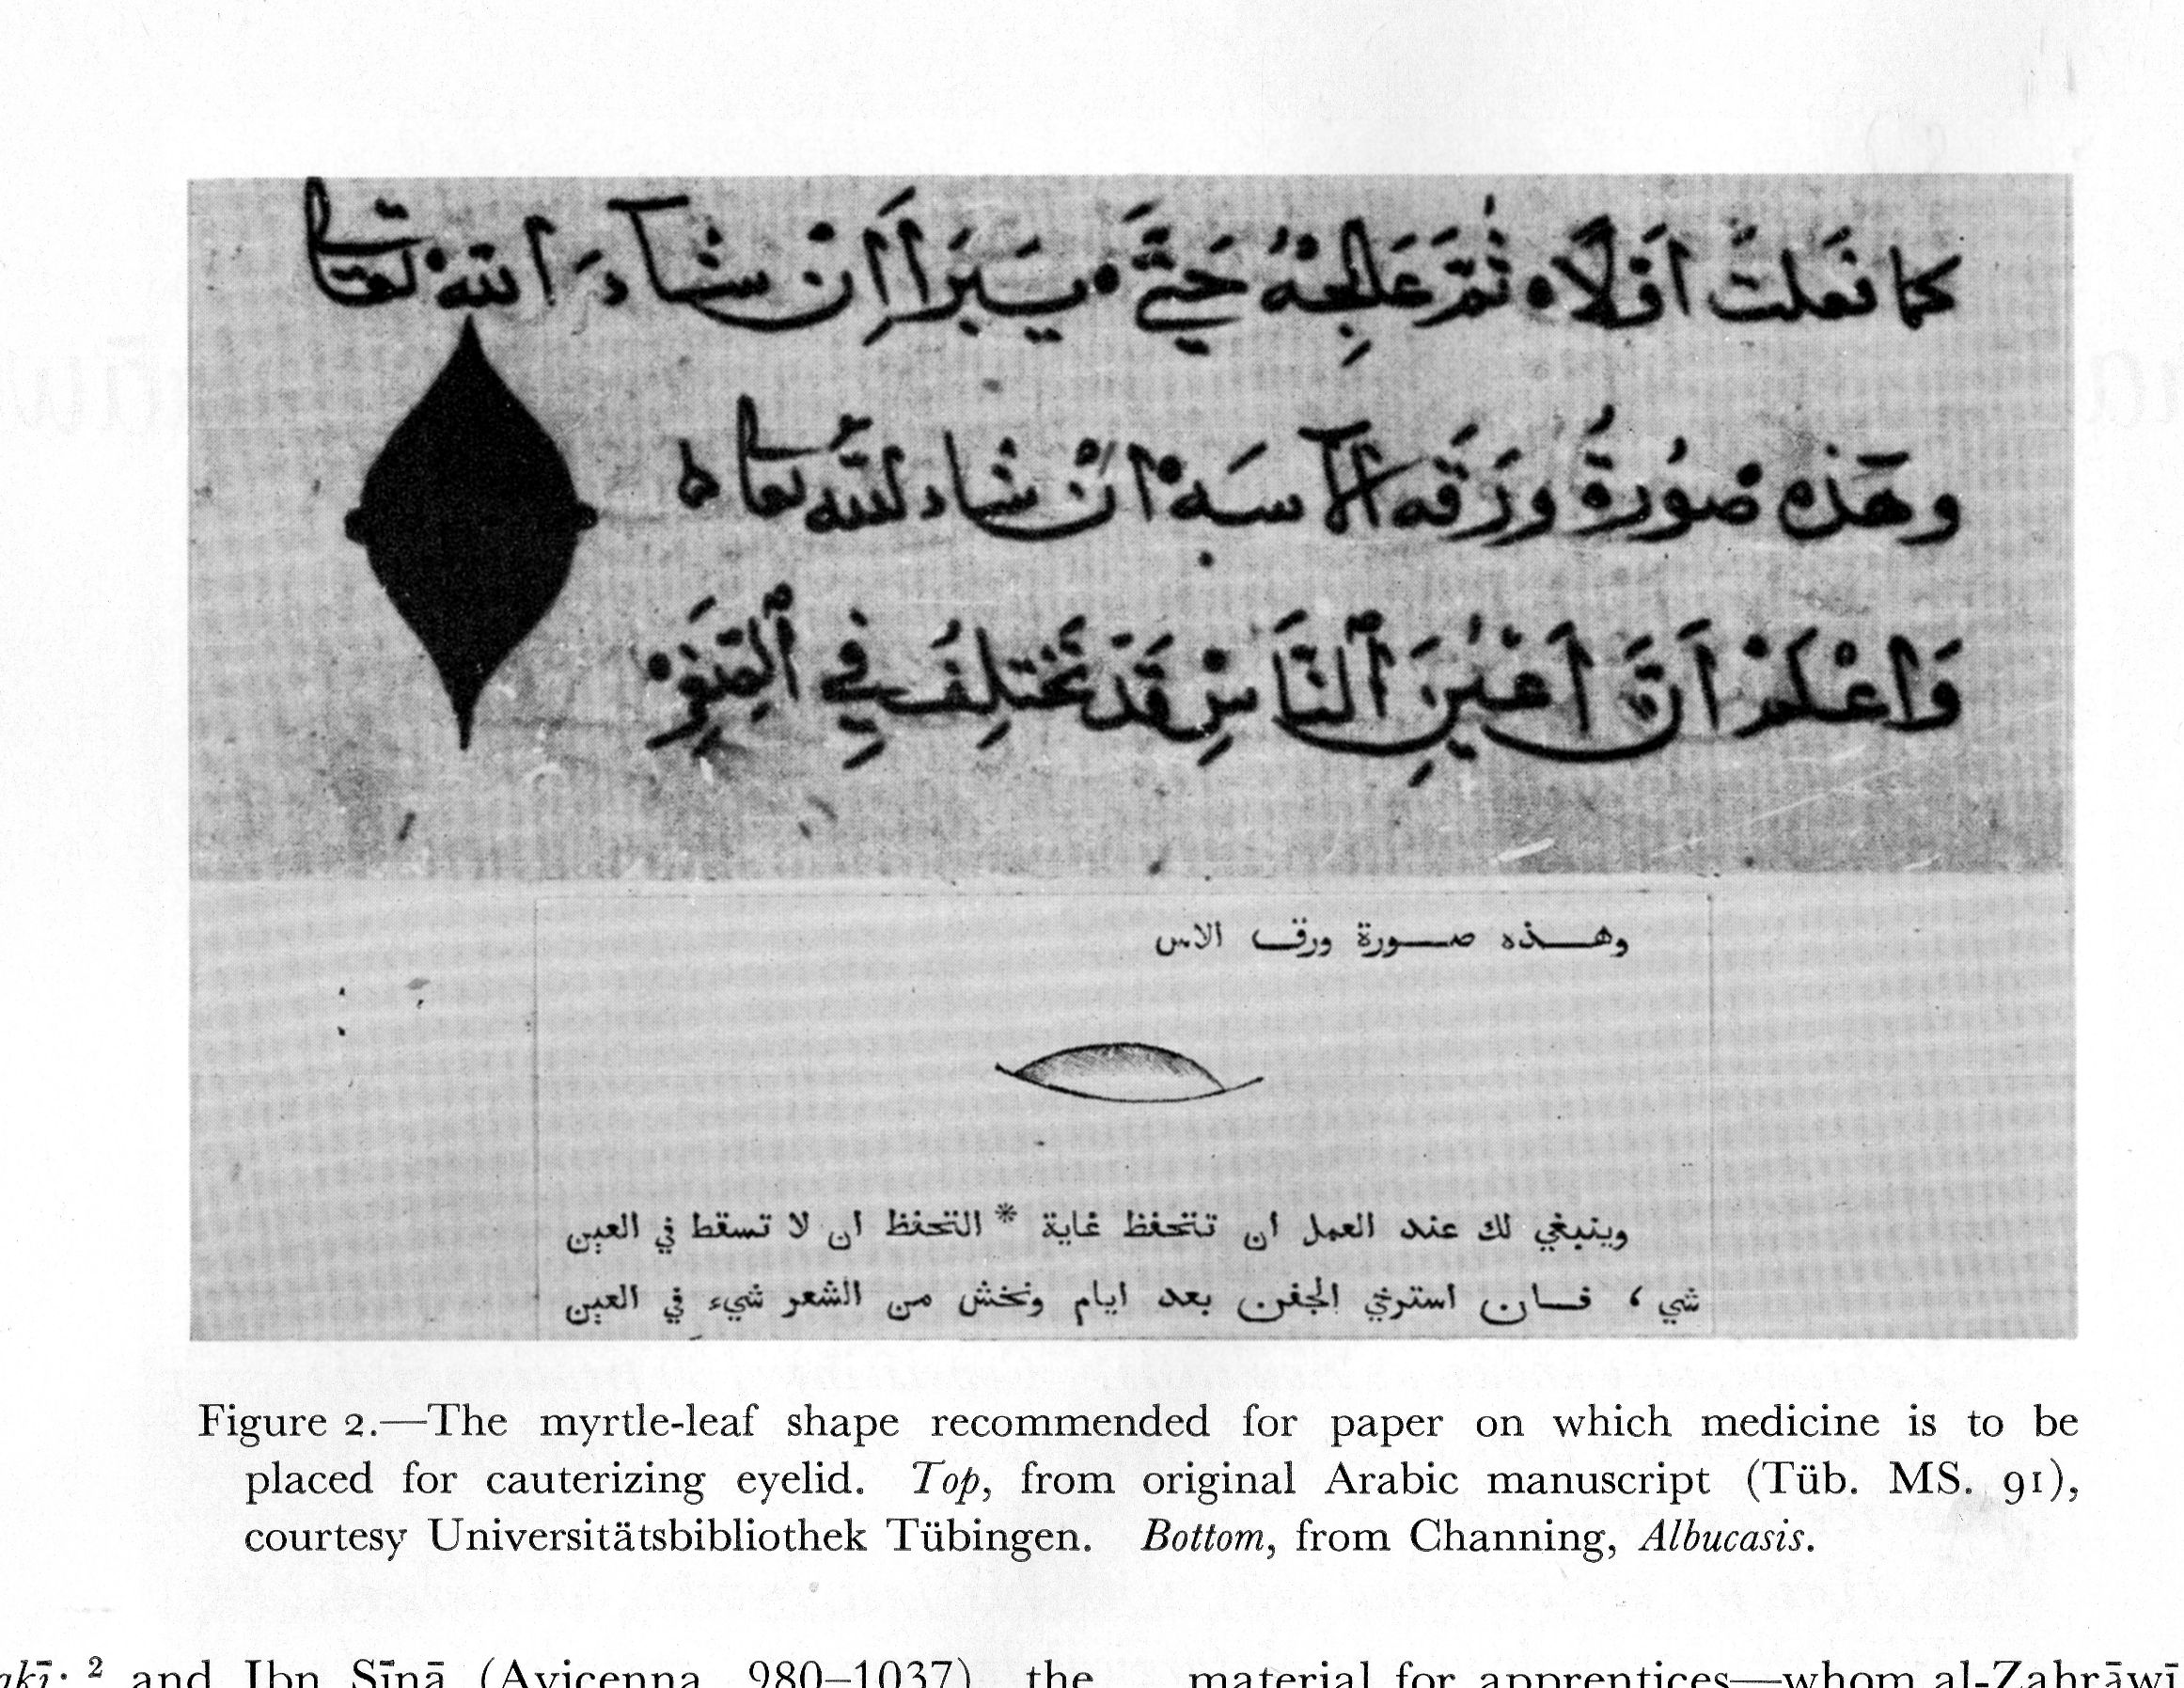 كما فَعلتَ اَوَّلًاه ثُمَّ عَالِجْهُ حَتَّى يَبْرَأ اِنْ شَآءَ اللهُ تعالى
وهَذِه صُورةُ ورَقَه الآسَهْ انْ شاءَ اللّه تعالى ه
وَاعْلَمْ اَنَّ اَعْيُنَ اَلنَّاسِ قَدْ تَخْتَلِفُ فِي اَلصِّغَرِ
وهـــذه صــورة ورق الاس
وينبغي لك عند العمل ان تتحفظ غاية * التحفظ ان لا تسقط في العين
شي ، فــان استرخى الجفن بعد ايام ونخش من الشعر شيء في العين
Figure 2.—The myrtle-leaf shape recommended for paper on which medicine is to be
placed for cauterizing eyelid. Top, from original Arabic manuscript (Tüb. MS. 91),
courtesy Universitätsbibliothek Tübingen. Bottom, from Channing, Albucasis.
akī; ² and Ibn Sīnā (Avicenna, 980–1037), the
material for apprentices—whom al-Zahrāwī